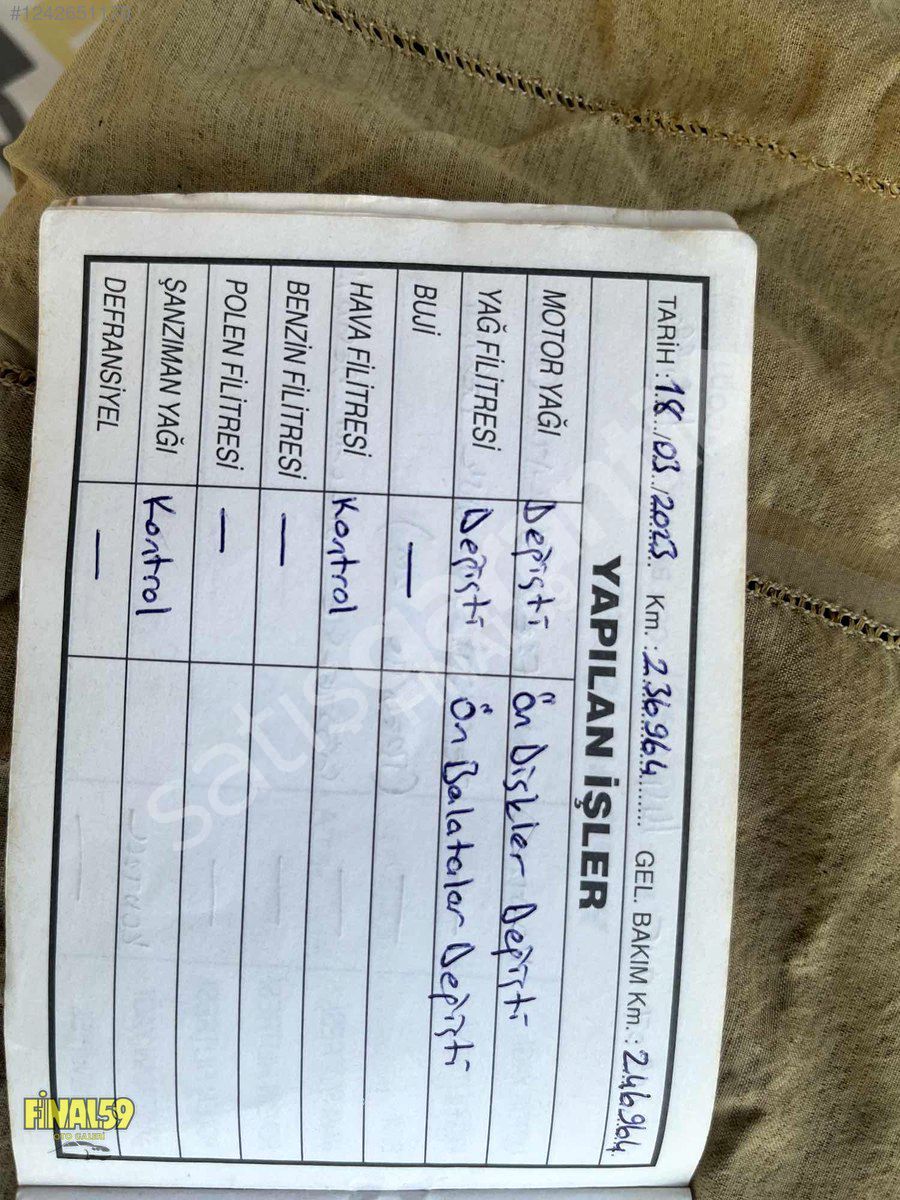 #1242651175
TARİH : 18/03/2023 Km. : 236964 GEL. BAKIM Km. : 246964
YAPILAN İŞLER
MOTOR YAĞI Değişti Ön Diskler Değişti
YAĞ FİLİTRESİ Değişti Ön Balatalar Değişti
BUJİ —
HAVA FİLİTRESİ Kontrol
BENZİN FİLİTRESİ —
POLEN FİLİTRESİ —
ŞANZIMAN YAĞI Kontrol
DEFRANSİYEL —
FİNAL59
OTO GALERİ